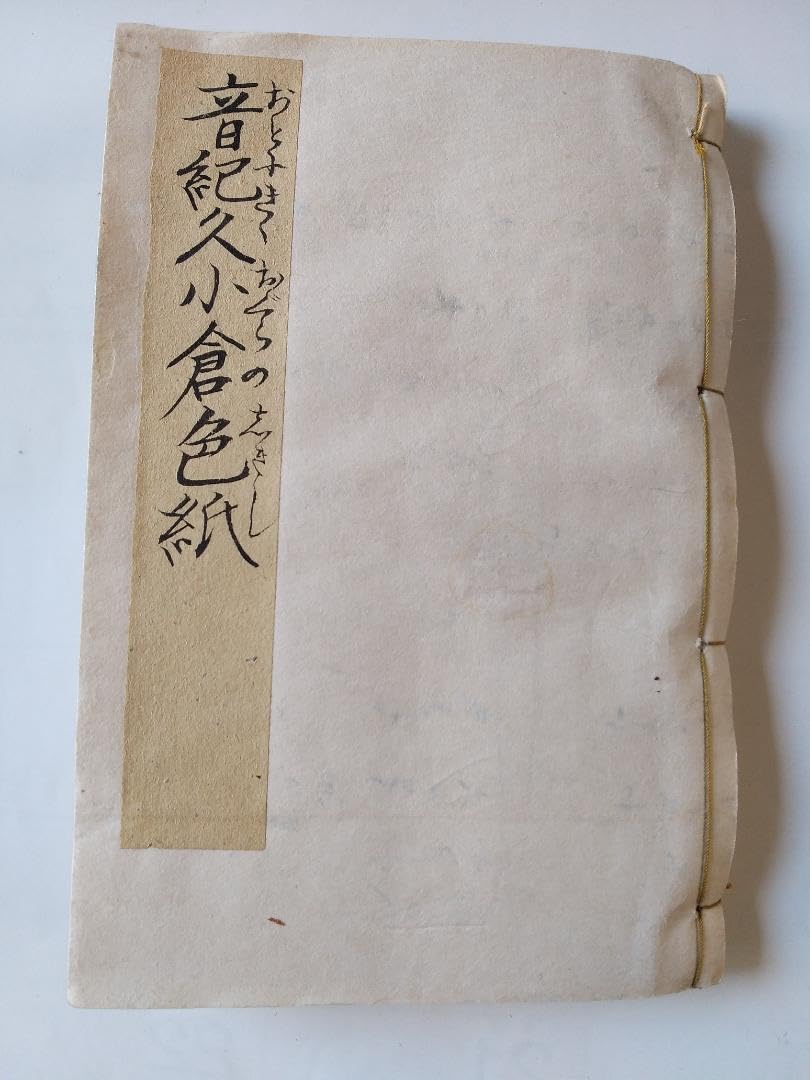 音紀久小倉色紙
おとにきくおぐらのしきし